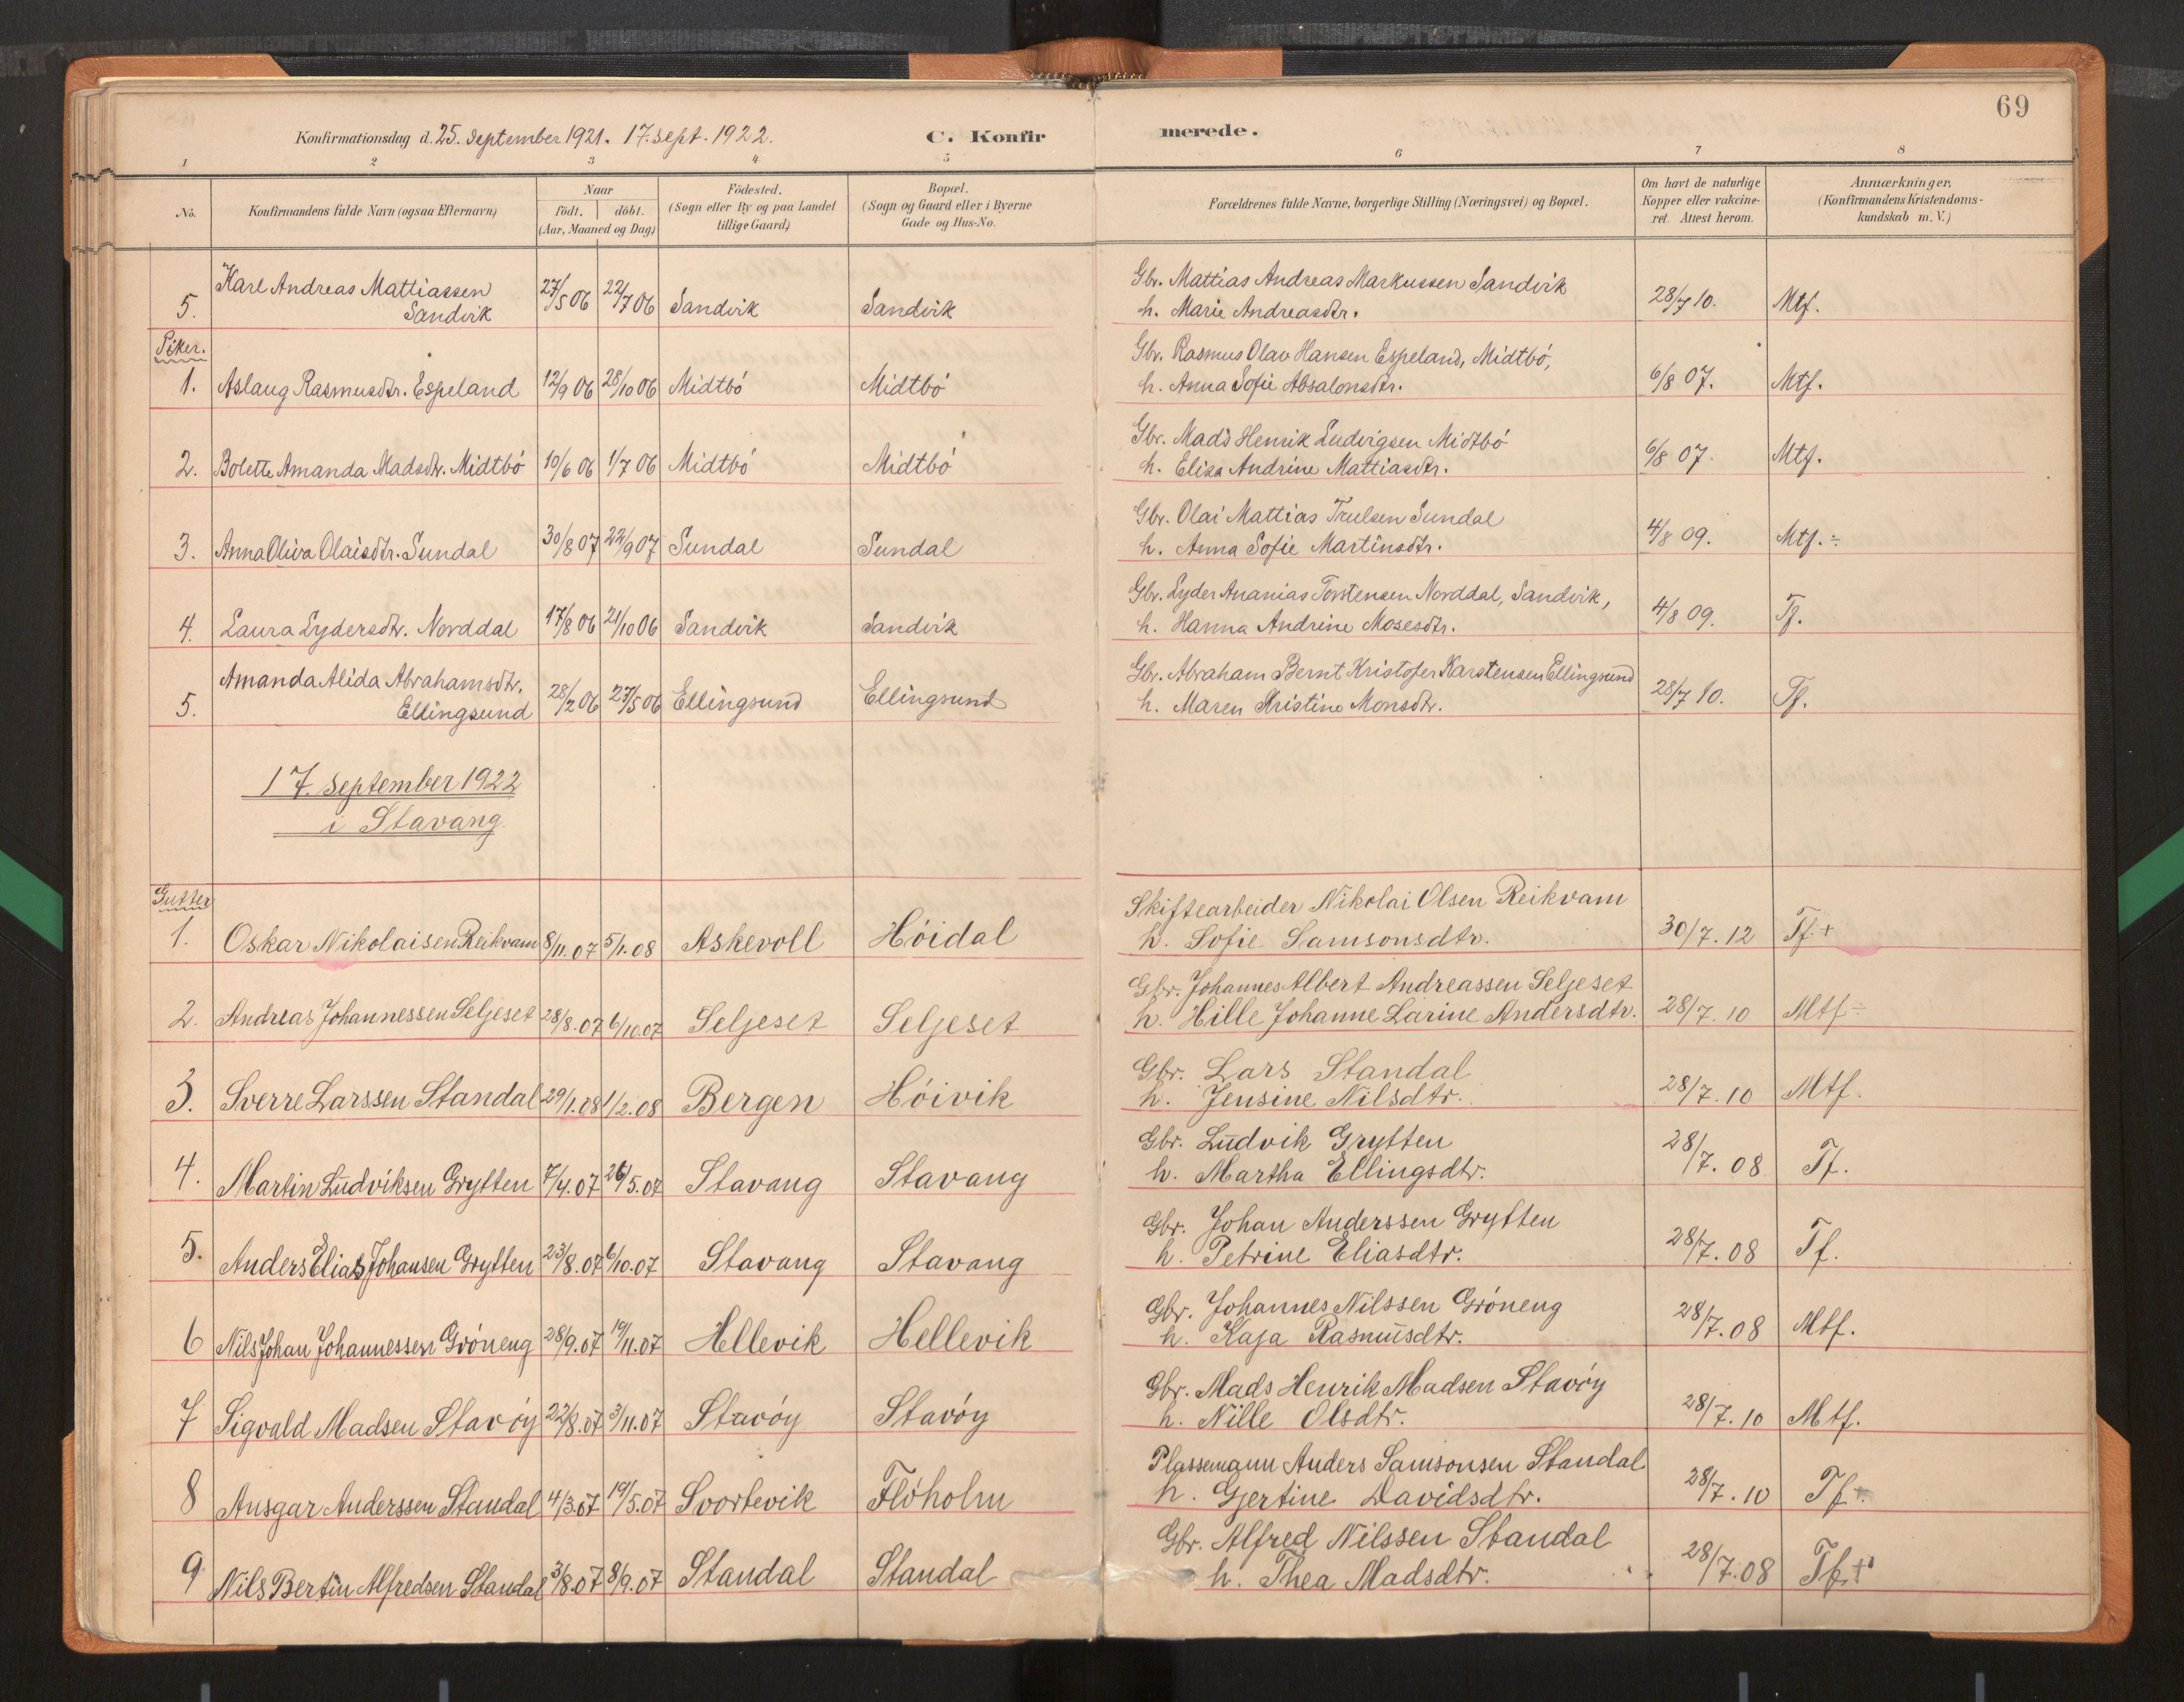 69
Konfirmationsdag d. 25. september 1921. 17. sept. 1922. C. Konfirmerede.
1 2 3 4 5 6 7 8
No. Konfirmandens fulde Navn (ogsaa Efternavn) Naar födt. döbt. (Aar, Maaned og Dag) Födested. (Sogn eller By og paa Landet tillige Gaard) Bopæl. (Sogn og Gaard eller i Byerne Gade og Hus-No. Forældrenes fulde Navne, borgerlige Stilling (Næringsvei) og Bopæl. Om havt de naturlige Kopper eller vakcineret. Attest herom. Anmærkninger, (Konfirmandens Kristendomskundskab m. V.)
5. Karl Andreas Mattiassen Sandvik 27/5 06 22/7 06 Sandvik Sandvik Gbr. Mattias Andreas Markussen Sandvik h. Marie Andreasdtr. 28/7 10. Mtf.
Piker.
1. Aslaug Rasmusdtr. Espeland 12/9 06 28/10 06 Midtbö Midtbö Gbr. Rasmus Olav Hansen Espeland, Midtbö, h. Anna Sofie Absalonsdtr. 6/8 07. Mtf.
2. Bolette Amanda Madsdtr. Midtbö 10/6 06 1/7 06 Midtbö Midtbö Gbr. Mads Henrik Ludvigsen Midtbö h. Elisa Andrine Mattiasdtr. 6/8 07. Mtf.
3. Anna Oliva Olaisdtr. Sundal 30/8 07 22/9 07 Sundal Sundal Gbr. Olai Mattias Trulsen Sundal h. Anna Sofie Martinsdtr. 4/8 09. Mtf. ÷
4. Laura Lydersdtr. Norddal 17/8 06 21/10 06 Sandvik Sandvik Gbr. Lyder Ananias Torstensen Norddal, Sandvik, h. Hanna Andrine Mosesdtr. 4/8 09. Tf.
5. Amanda Alida Abrahamsdtr. Ellingsund 28/2 06 27/5 06 Ellingsund Ellingsund Gbr. Abraham Bernt Kristofer Karstensen Ellingsund h. Maren Kristine Monsdtr. 28/7 10. Tf.
17. september 1922
i Stavang
Gutter
1. Oskar Nikolaisen Reikvam 8/11.07 5/1.08 Askevoll Höidal Skiftearbeider Nikolai Olsen Reikvam h. Sofie Samsonsdtr. 30/7.12 Tf.+
2. Andreas Johannessen Seljeset 28/8.07 6/10.07 Seljeset Seljeset Gbr. Johannes Albert Andreassen Seljeset h. Hille Johanne Larine Andersdtr. 28/7.10 Mtf ÷
3. Sverre Larssen Standal 29/1.08 1/2.08 Bergen Höivik Gbr. Lars Standal h. Jensine Nilsdtr. 28/7.10 Mtf.
4. Martin Ludviksen Grytten 7/4.07 26/5.07 Stavang Stavang Gbr. Ludvik Grytten h. Martha Ellingsdtr. 28/7.08 Tf.
5. Anders Elias Johansen Grytten 23/8.07 6/10.07 Stavang Stavang Gbr. Johan Anderssen Grytten h. Petrine Eliasdtr. 28/7.08 Tf.
6 Nils Johan Johannessen Gröneng 28/9.07 19/11.07 Hellevik Hellevik Gbr. Johannes Nilssen Gröneng h. Kaja Rasmusdtr. 28/7.08 Mtf.
7 Sigvald Madsen Stavöy 22/8.07 3/11.07 Stavöy Stavöy Gbr. Mads Henrik Madsen Stavöy h. Nille Olsdtr. 28/7.10 Mtf.
8 Ansgar Anderssen Standal 4/3.07 19/5.07 Svortevik Flöholm Plassemann Anders Samsonsen Standal h. Gjertine Davidsdtr. 28/7.10 Tf+.
9 Nils Bertin Alfredsen Standal 3/8.07 8/9.07 Standal Standal Gbr. Alfred Nilssen Standal h. Thea Madsdtr. 28/7.08 Tf.+